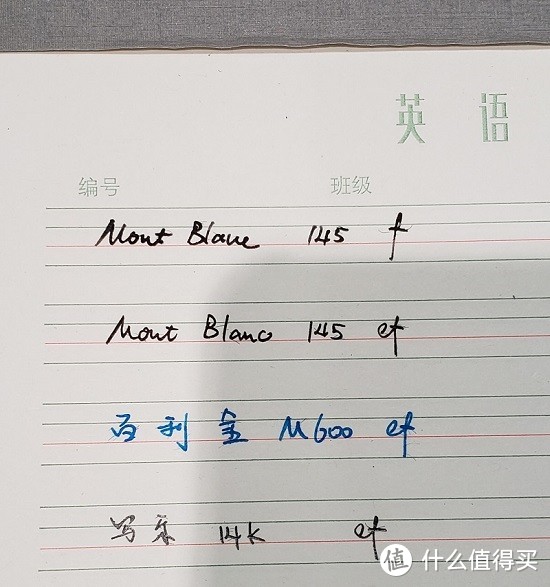 英 语
编号 班级
Mont Blanc 145 f
Mont Blanc 145 ef
百利金 M600 ef
写乐 14K ef
值 什么值得买